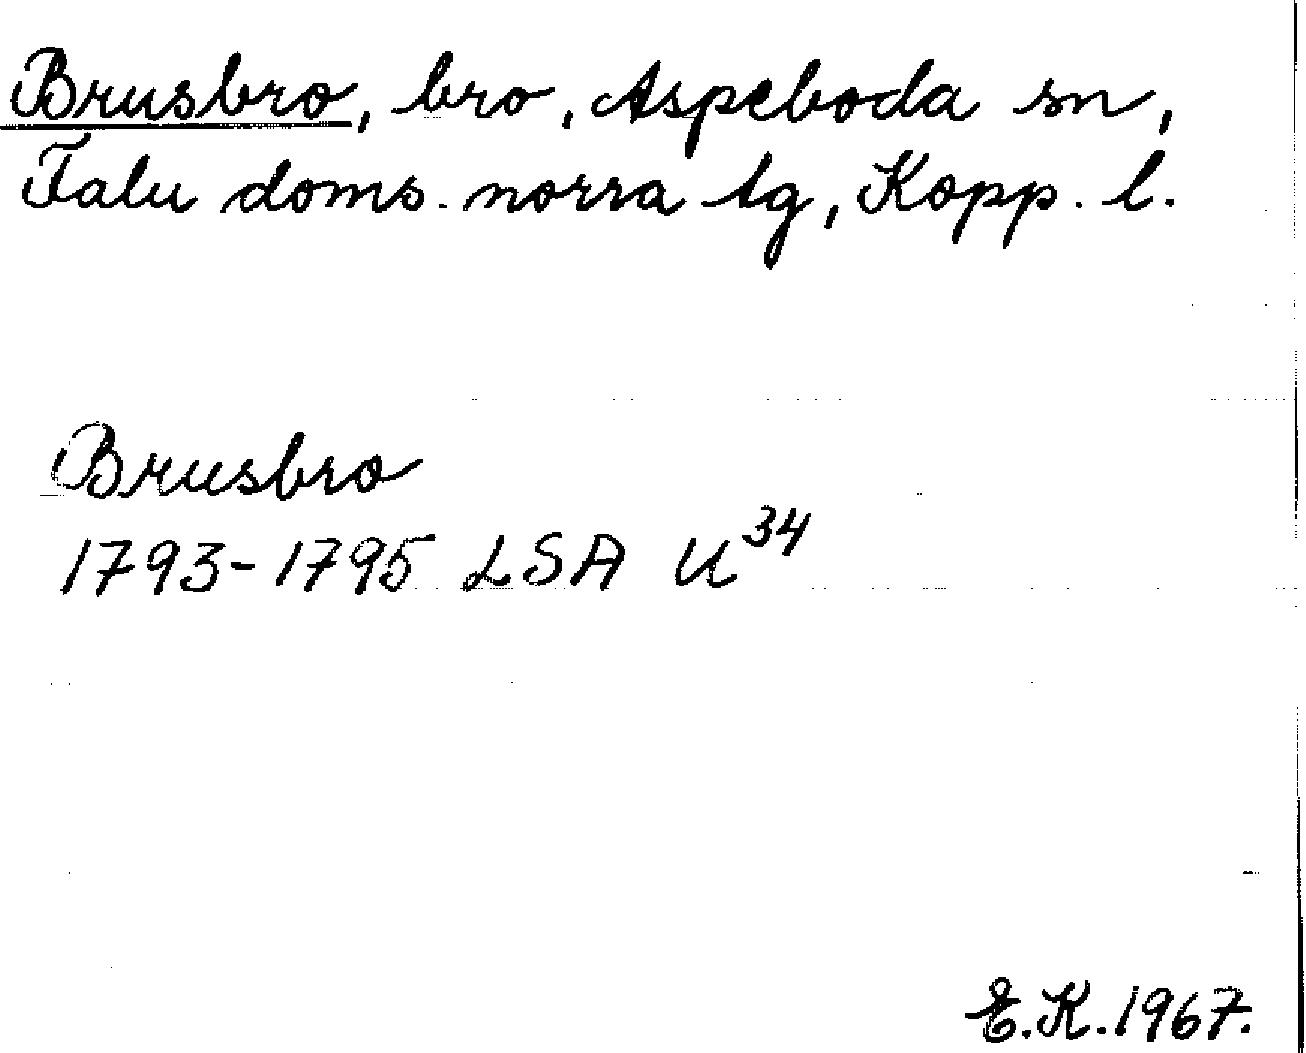 Brusbro, bro, Aspeboda sn,
Falu doms. norra tg, Kopp. l.
Brusbro
1793-1795 LSA U³⁴
E.K. 1967.